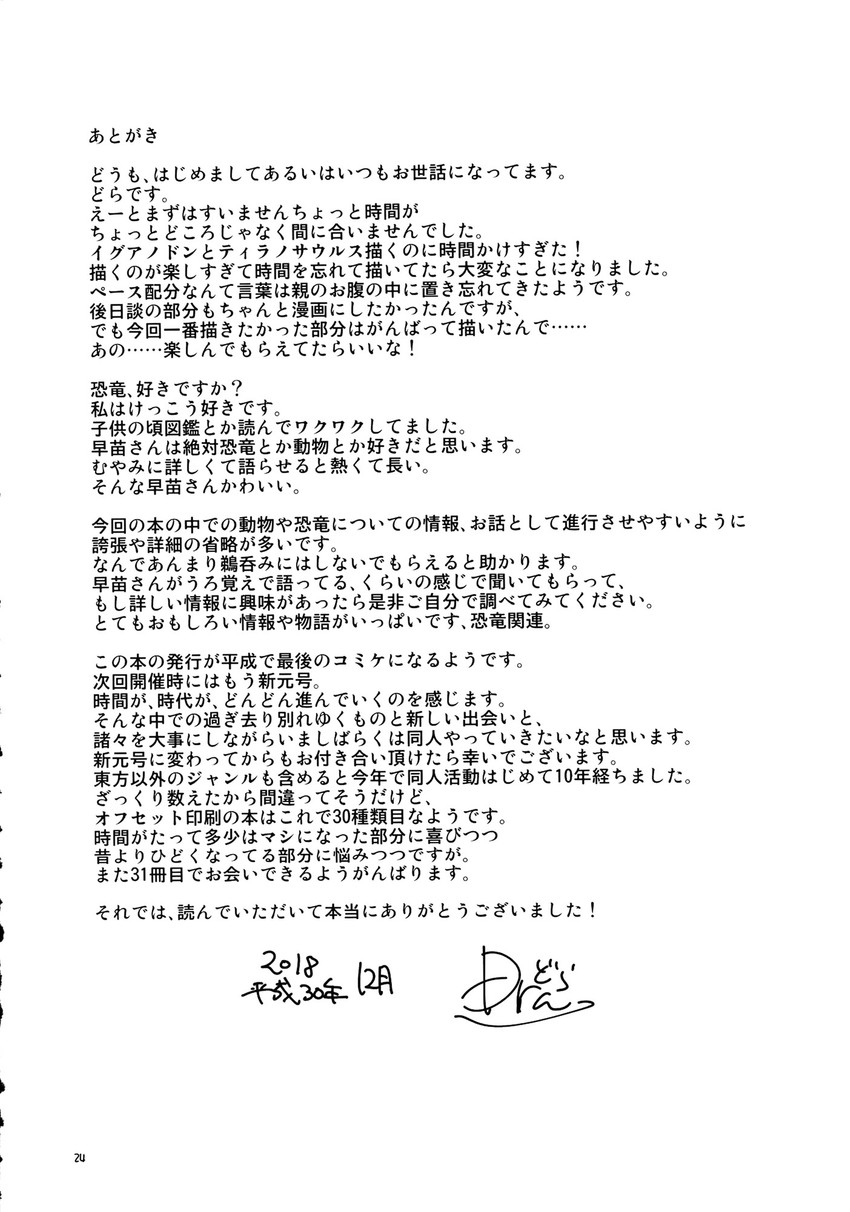 あとがき
どうも、はじめましてあるいはいつもお世話になってます。
どらです。
えーとまずはすいませんちょっと時間が
ちょっとどころじゃなく間に合いませんでした。
イグアノドンとティラノサウルス描くのに時間かけすぎた！
描くのが楽しすぎて時間を忘れて描いてたら大変なことになりました。
ペース配分なんて言葉は親のお腹の中に置き忘れてきたようです。
後日談の部分もちゃんと漫画にしたかったんですが、
でも今回一番描きたかった部分はがんばって描いたんで……
あの……楽しんでもらえてたらいいな！
恐竜、好きですか？
私はけっこう好きです。
子供の頃図鑑とか読んでワクワクしてました。
早苗さんは絶対恐竜とか動物とか好きだと思います。
むやみに詳しくて語らせると熱くて長い。
そんな早苗さんかわいい。
今回の本の中での動物や恐竜についての情報、お話として進行させやすいように
誇張や詳細の省略が多いです。
なんであんまり鵜呑みにはしないでもらえると助かります。
早苗さんがうろ覚えで語ってる、くらいの感じで聞いてもらって、
もし詳しい情報に興味があったら是非ご自分で調べてみてください。
とてもおもしろい情報や物語がいっぱいです、恐竜関連。
この本の発行が平成で最後のコミケになるようです。
次回開催時にはもう新元号。
時間が、時代が、どんどん進んでいくのを感じます。
そんな中での過ぎ去り別れゆくものと新しい出会いと、
諸々を大事にしながらいましばらくは同人やっていきたいなと思います。
新元号に変わってからもお付き合い頂けたら幸いでございます。
東方以外のジャンルも含めると今年で同人活動はじめて10年経ちました。
ざっくり数えたから間違ってそうだけど、
オフセット印刷の本はこれで30種類目なようです。
時間がたって多少はマシになった部分に喜びつつ
昔よりひどくなってる部分に悩みつつですが。
また31冊目でお会いできるようがんばります。
それでは、読んでいただいて本当にありがとうございました！
2018
平成30年 12月
どら
Dra
24